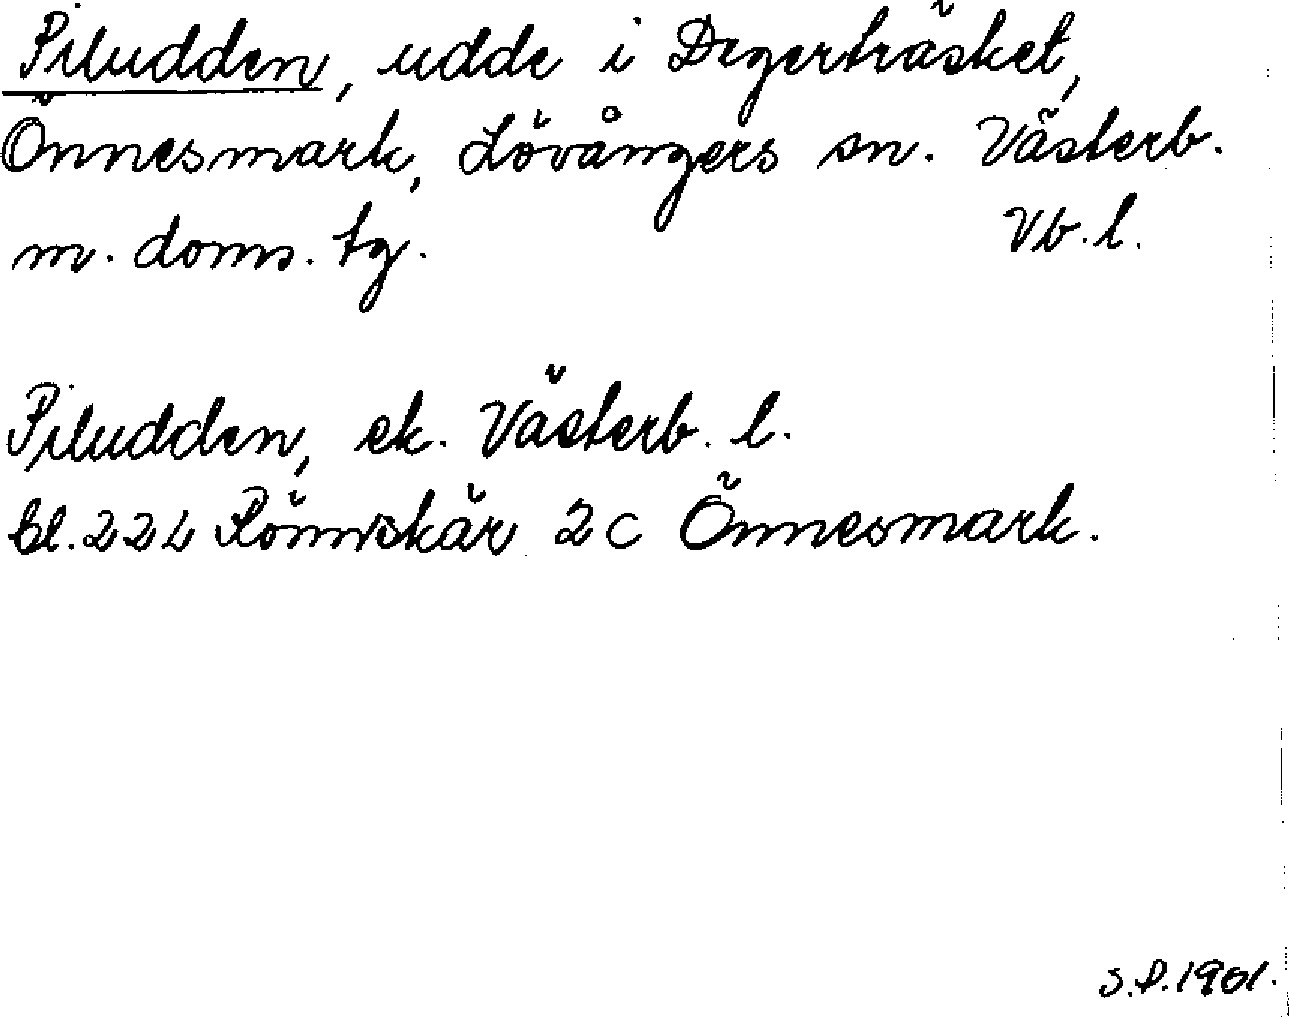 Piludden, udde i Degerträsket,
Önnesmark, Lövångers sn. Västerb.
m. doms. tg. Vb. l.
Piludden, ek. Västerb. l.
bl. 22L Rönnskär 2c Önnesmark.
S.P. 1961.